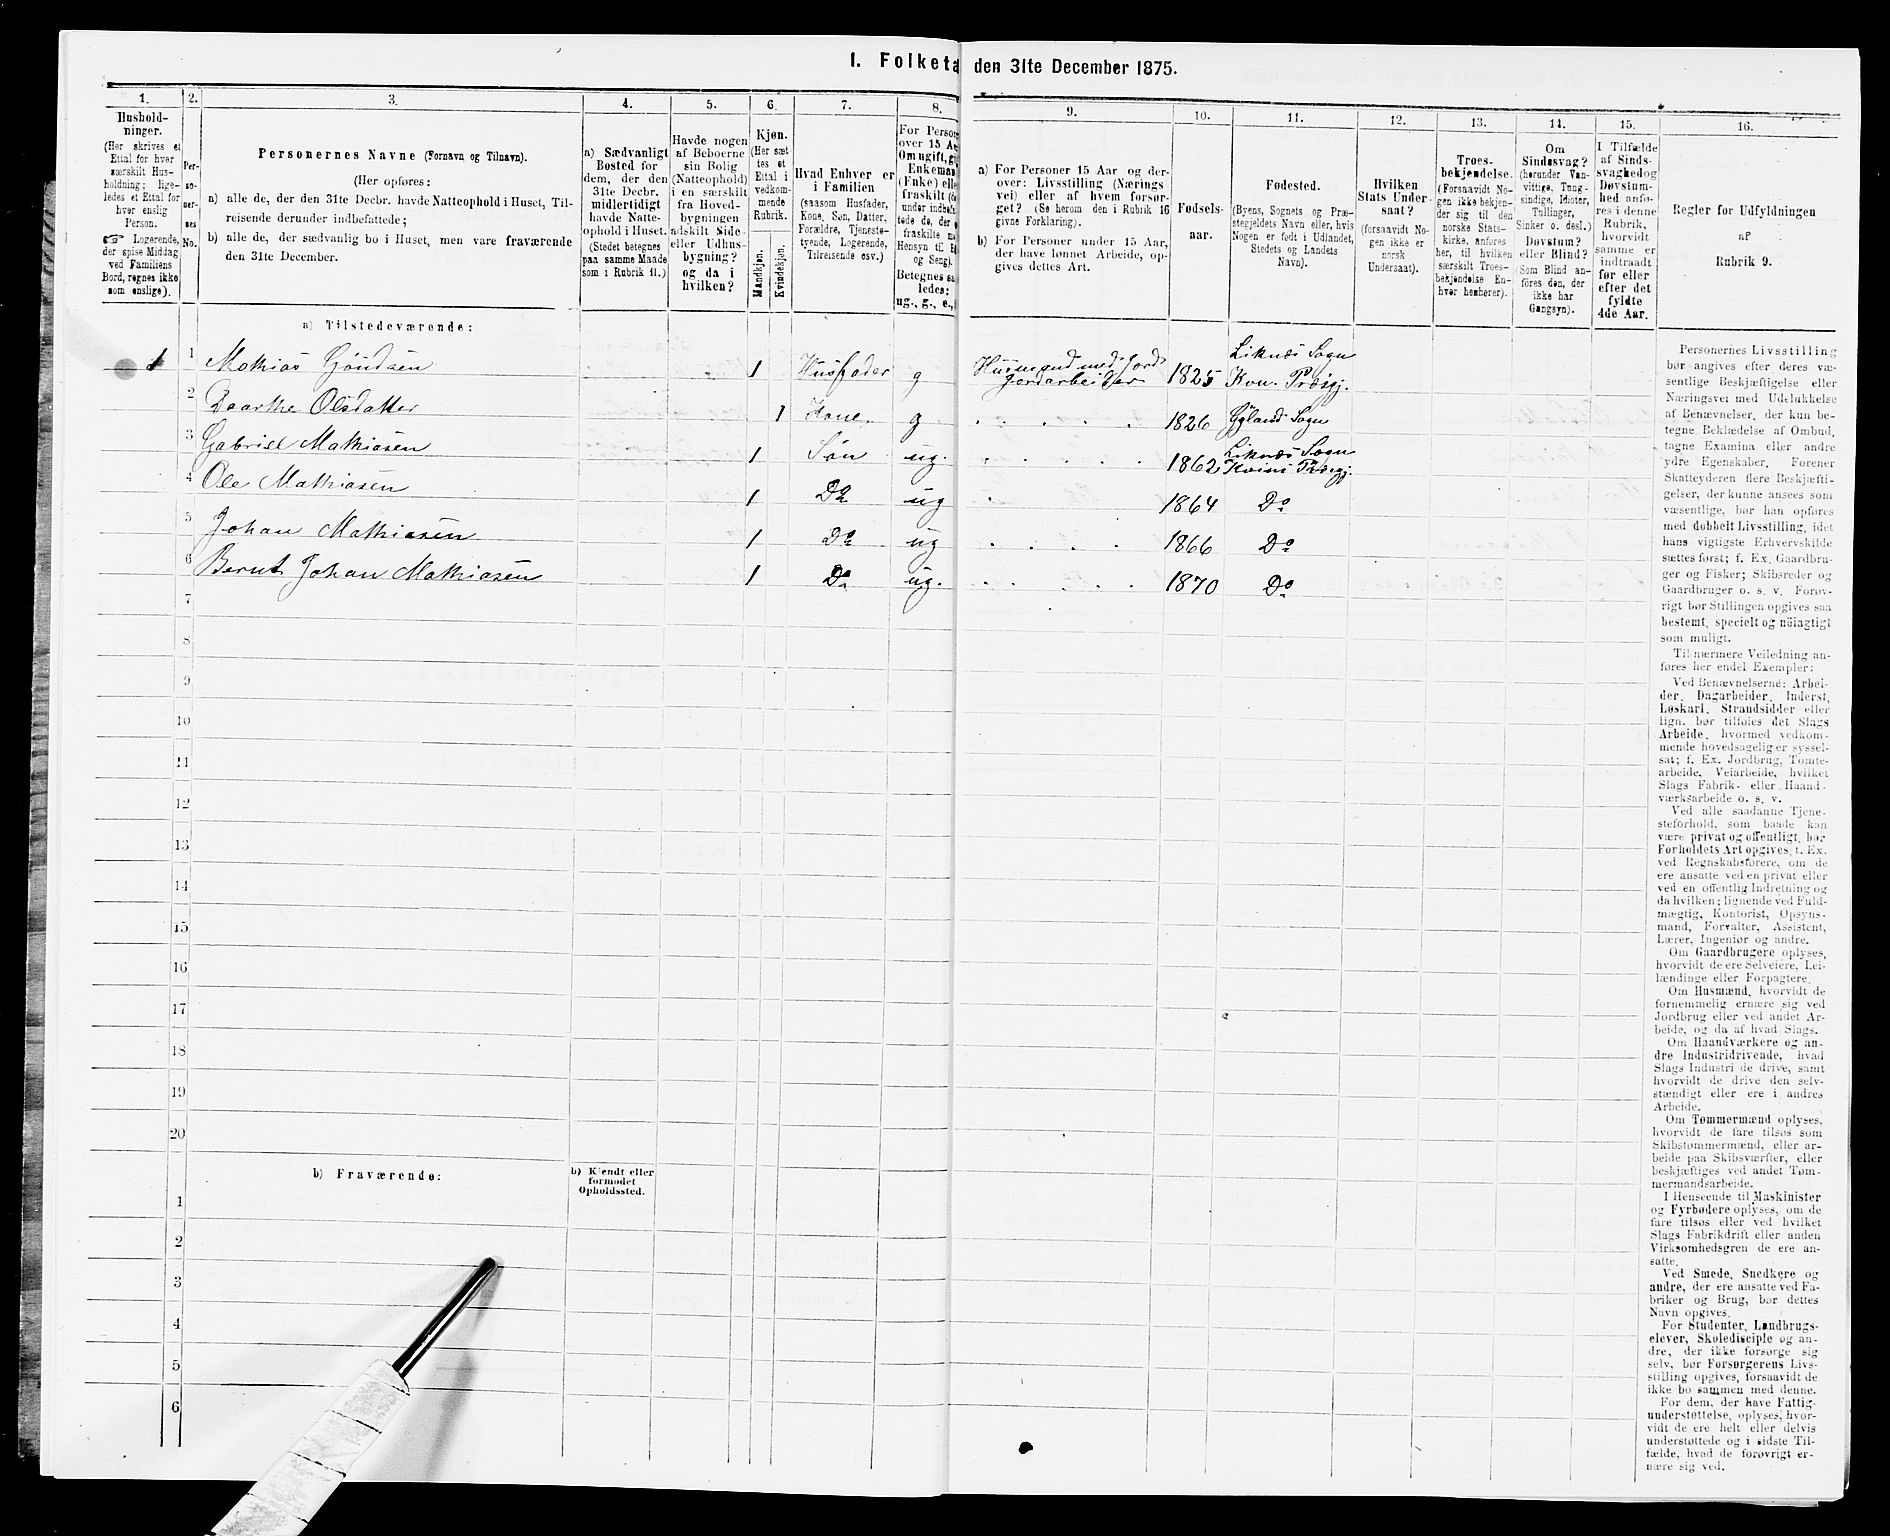 1. Folketæ den 31te December 1875.
1. 2. 3. 4. 5. 6. 7. 8. 9. 10. 11. 12. 13. 14. 15. 16.
Hushold-
ninger.
(Her skrives et
Ettal for hver
særskilt Hus-
holdning; lige-
ledes et Ettal for
hver enslig
Person.
☞ Logerende,
der spise Middag
ved Familiens
Bord, regnes ikke
som enslige).
Per-
so-
ner-
nes
No.
Personernes Navne (Fornavn og Tilnavn).
(Her opføres:
a) alle de, der den 31te Decbr. havde Natteophold i Huset, Til-
reisende derunder indbefattede;
b) alle de, der sædvanlig bo i Huset, men vare fraværende
den 31te December.
a) Sædvanligt
Bosted for
dem, der den
31te Decbr.
midlertidigt
havde Natte-
ophold i Huset.
(Stedet betegnes
paa samme Maade
som i Rubrik 11.)
Havde nogen
af Beboerne
sin Bolig
(Natteophold)
i en særskilt
fra Hoved-
bygningen
adskilt Side-
eller Udhus-
bygning?
og da i
hvilken?
Kjøn.
(Her sæt
tes et
Ettal i
vedkom-
mende
Rubrik.
Mandkjøn.
Kvindekjøn.
Hvad Enhver er
i Familien
(saasom Husfader,
Kone, Søn, Datter,
Forældre, Tjeneste-
tyende, Logerende,
Tilreisende osv.)
For Person
over 15 Aa
Om ugift, g
Enkeman
(Enke) elle
fraskilt (d
under indbef
tede de, der
fraskilte m
Hensyn til B
og Seng).
Betegnes sa
ledes:
ug., g., e.,
a) For Personer 15 Aar og der-
over: Livsstilling (Nærings-
vei) eller af hvem forsør-
get? (Se herom den i Rubrik 16
givne Forklaring).
b) For Personer under 15 Aar,
der have lønnet Arbeide, op-
gives dettes Art.
Fødsels-
aar.
Fødested.
(Byens, Sognets og Præ-
stegjeldets Navn eller, hvis
Nogen er født i Udlandet,
Stedets og Landets
Navn).
Hvilken
Stats Under-
saat?
(forsaavidt No-
gen ikke er
norsk
Undersaat).
Troes-
bekjendelse.
(Forsaavidt No-
gen ikke bekjen-
der sig til den
norske Stats-
kirke, anføres
her, til hvilken
særskilt Troes-
bekjendelse En-
hver henhører).
Om
Sindssvag?
(herunder Van-
vittige, Tung-
sindige, Idioter,
Tullinger,
Sinker o. desl.)
Døvstum?
eller Blind?
(Som Blind an-
føres den, der
ikke har
Gangsyn).
I Tilfælde
af Sinds-
svaghed og
Døvstum-
hed anfø-
res i denne
Rubrik,
hvorvidt
samme er
indtraadt
før eller
efter det
fyldte
4de Aar.
Regler for Udfyldningen
af
Rubrik 9.
a) Tilstedeværende:
1 1 Mathias Gundsen 1 Husfader g Husmand med Jord Jordarbeider 1825 Liknæs Sogn Kvin. Præsgj.
2 Baarthe Olsdatter 1 Kone g 1826 Gyland Sogn
3 Gabriel Mathiasen 1 Søn ug. 1862 Liknæs Sogn Kvins Præsgj.
4 Ole Mathiasen 1 Do ug 1864 Do
5 Johan Mathiasen 1 Do ug 1866 Do
6 Bernt Johan Mathiasen 1 Do ug. 1870 Do
7
8
9
10
11
12
13
14
15
16
17
18
19
20
b) Fraværende:
b) Kjendt eller
formodet
Opholdssted.
1
2
3
4
5
6
Personernes Livsstilling
bør angives efter deres væ-
sentlige Beskjæftigelse eller
Næringsvei med Udelukkelse
af Benævnelser, der kun be-
tegne Beklædelse af Ombud,
tagne Examina eller andre
ydre Egenskaber. Forener
Skatteyderen flere Beskjæfti-
gelser, der kunne ansees som
væsentlige, bør han opføres
med dobbelt Livsstilling, idet
hans vigtigste Erhvervskilde
sættes først; f. Ex. Gaardbru-
ger og Fisker; Skibsreder og
Gaardbruger o. s. v. Forøv-
rigt bør Stillingen opgives saa
bestemt, specielt og nöiagtigt
som muligt.
Til nærmere Veiledning an-
føres her endel Exempler:
Ved Benævnelserne: Arbei-
der, Dagarbeider, Inderst,
Løskarl, Strandsidder eller
lign. bør tilføies det Slags
Arbeide, hvormed vedkom-
mende hovedsagelig er syssel-
sat; f. Ex. Jordbrug, Tomte-
arbeide, Veiarbeide, hvilket
Slags Fabrik- eller Haand-
værksarbeide o. s. v.
Ved alle saadanne Tjene-
steforhold, som baade kan
være privat og offentligt, bør
Forholdets Art opgives, f. Ex.
ved Regnskabsførere, om de
ere ansatte ved en privat eller
ved en offentlig Indretning og
da hvilken; lignende ved Fuld-
mægtig, Kontorist, Opsyns-
mand, Forvalter, Assistent,
Lærer, Ingeniør og andre.
Om Gaardbrugere oplyses,
hvorvidt de ere Selveiere, Lei-
lændinge eller Forpagtere.
Om Husmænd, hvorvidt de
fornemmelig ernære sig ved
Jordbrug eller ved andet Ar-
beide, og da af hvad Slags.
Om Haandværkere og an-
dre Industridrivende, hvad
Slags Industri de drive, samt
hvorvidt de drive den selv-
stændigt eller ere i andres
Arbeide.
Om Tømmermænd oplyses,
hvorvidt de fare tilsøs som
Skibstømmermænd, eller ar-
beide paa Skibsværfter, eller
beskjæftiges ved andet Tøm-
mermandsarbeide.
I Henseende til Maskinister
og Fyrbødere oplyses, om de
fare tilsøs eller ved hvilket
Slags Fabrikdrift eller anden
Virksomhedsgren de ere an-
satte.
Ved Smede, Snedkere og
andre, der ere ansatte ved Fa-
briker og Brug, bør dettes
Navn opgives.
For Studenter, Landbrugs-
elever, Skoledisciple og an-
dre, der ikke forsørge sig
selv, bør Forsørgerens Livs-
stilling opgives, forsaavidt de
ikke bo sammen med denne.
For dem, der have Fattig-
understøttelse, oplyses, hvor-
vidt de ere helt eller delvis
understøttede og i sidste Til-
fælde, hvad de forøvrigt er-
nære sig ved.